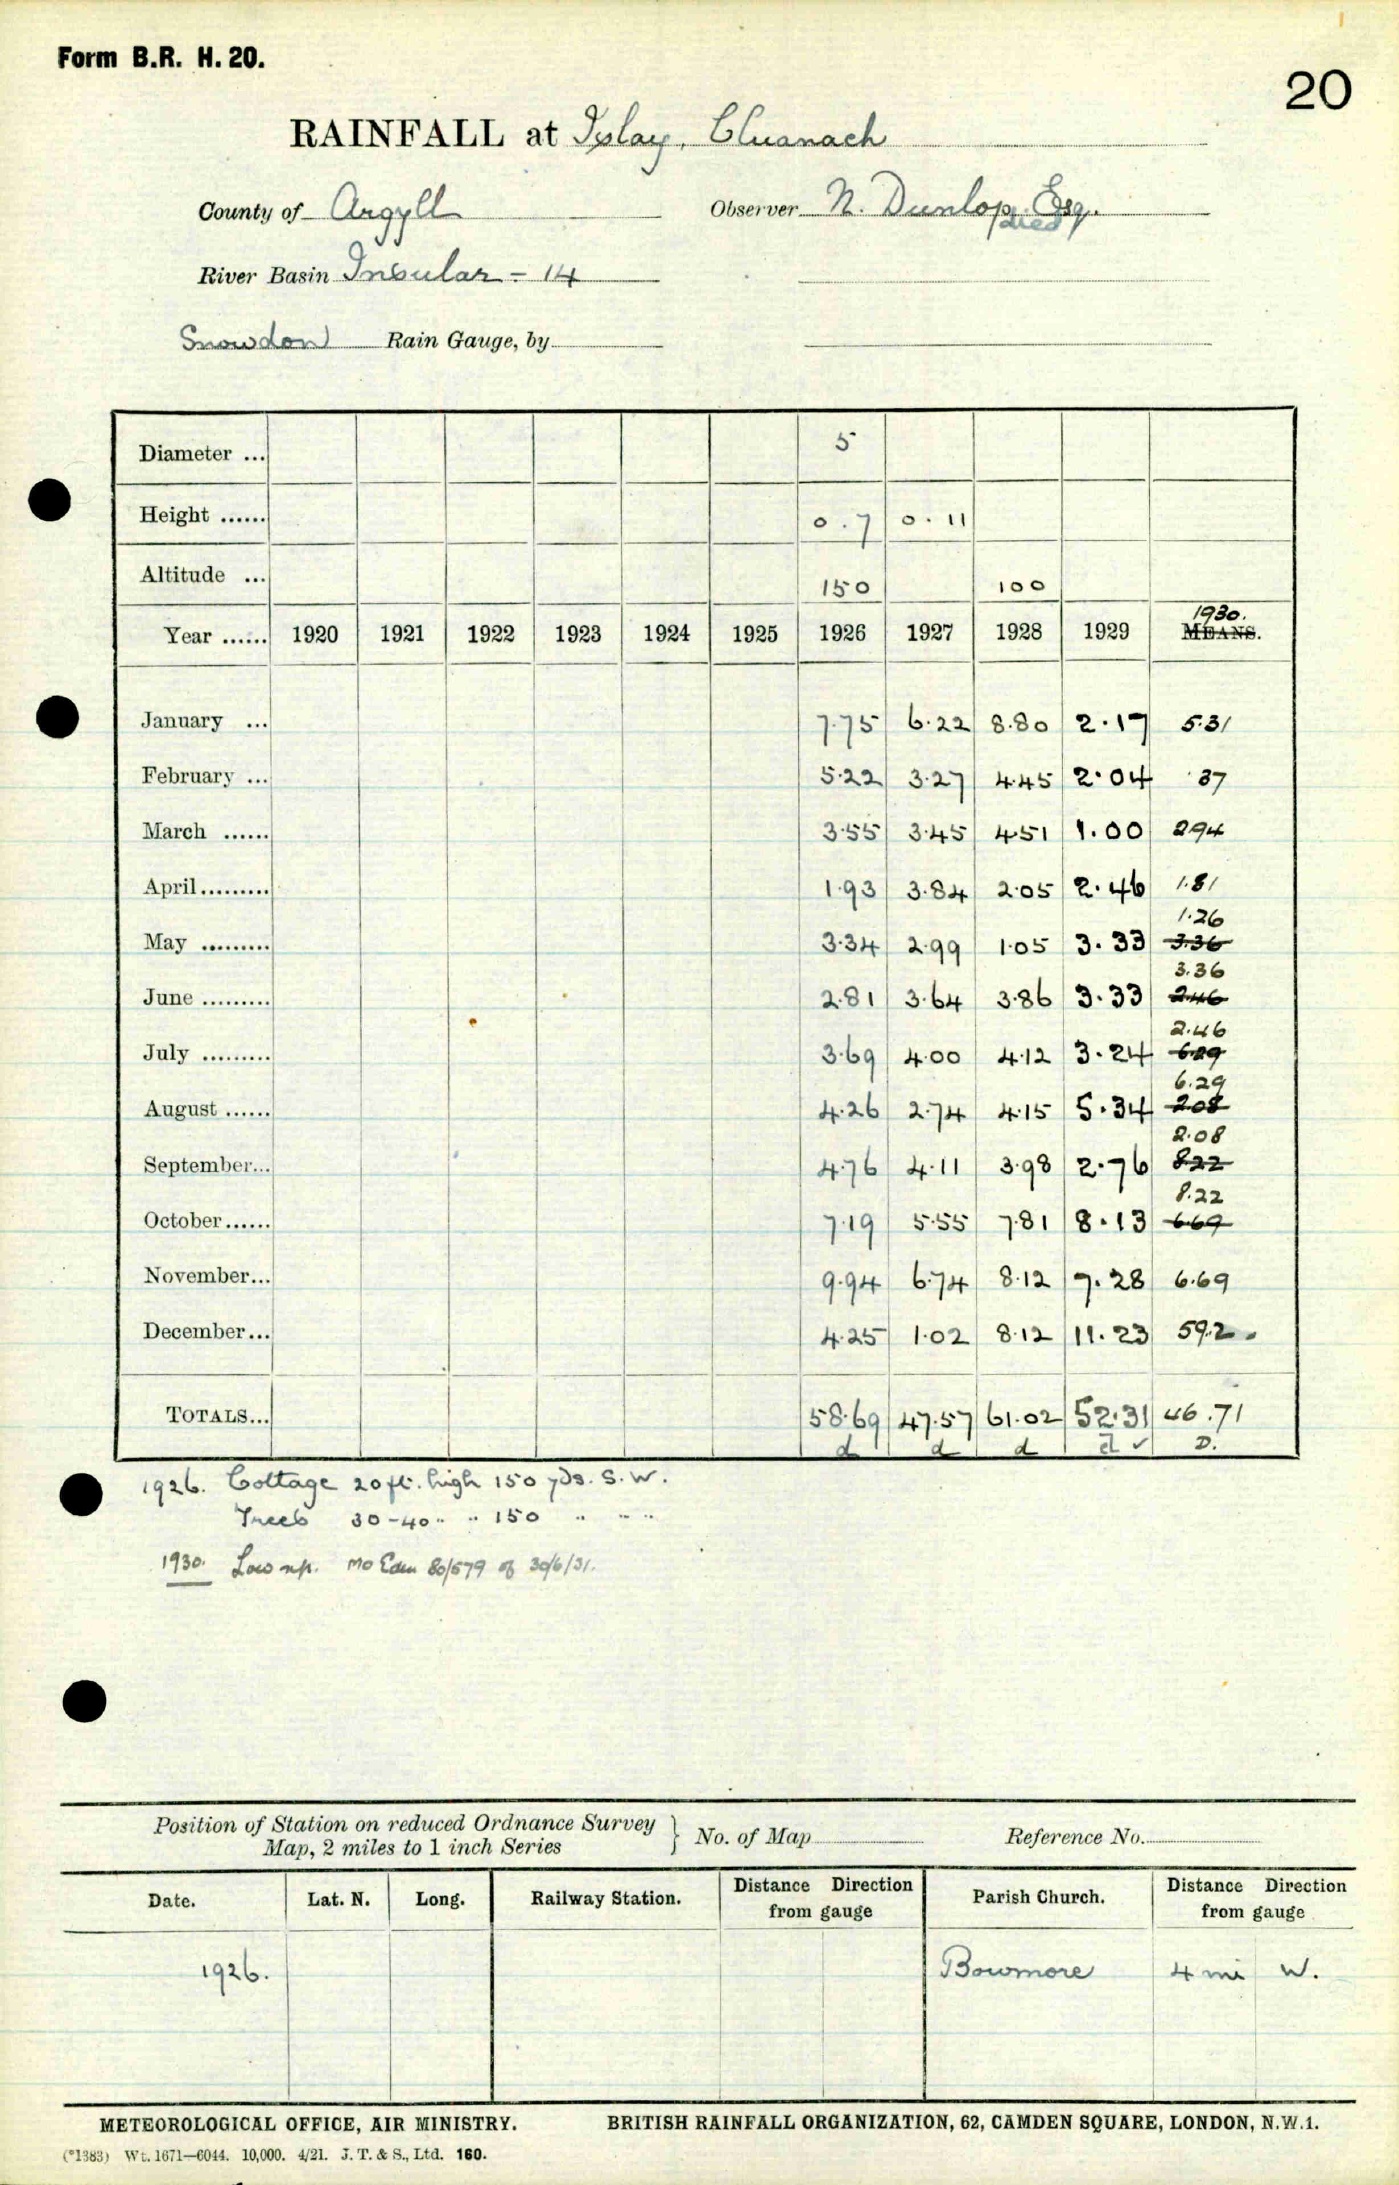 Form B.R. H. 20.
20
RAINFALL at Islay, Cluanach
County of Argyll Observer N. Dunlop, Esq.
died
River Basin Insular - 14
Snowdon Rain Gauge, by
Diameter ... 5
Height ...... 0.7 0.11
Altitude ... 150 100
Year ...... 1920 1921 1922 1923 1924 1925 1926 1927 1928 1929 1930. MEANS.
January ... 7.75 6.22 8.80 2.17 5.31
February ... 5.22 3.27 4.45 2.04 .37
March ...... 3.55 3.45 4.51 1.00 2.94
April......... 1.93 3.84 2.05 2.46 1.81
1.26
May ......... 3.34 2.99 1.05 3.33 3.36
3.36
June ......... 2.81 3.64 3.86 3.33 2.46
2.46
July ......... 3.69 4.00 4.12 3.24 6.29
6.29
August ...... 4.26 2.74 4.15 5.34 2.08
2.08
September... 4.76 4.11 3.98 2.76 8.22
8.22
October...... 7.19 5.55 7.81 8.13 6.69
November... 9.94 6.74 8.12 7.28 6.69
December... 4.25 1.02 8.12 11.23 5.92.
TOTALS... 58.69 47.57 61.02 52.31 46.71
d d d d ✓ D.
1926. Cottage 20 ft. high 150 yds. S.W.
Trees 30-40 " " 150 " " "
1930. Low np. MO Edin 80/579 of 30/6/31.
Position of Station on reduced Ordnance Survey
Map, 2 miles to 1 inch Series } No. of Map Reference No.
Date. Lat. N. Long. Railway Station. Distance Direction from gauge Parish Church. Distance Direction from gauge
1926. Bowmore 4 mi W.
METEOROLOGICAL OFFICE, AIR MINISTRY. BRITISH RAINFALL ORGANIZATION, 62, CAMDEN SQUARE, LONDON, N.W.1.
(*1383) Wt. 1671—6044. 10,000. 4/21. J. T. & S., Ltd. 160.